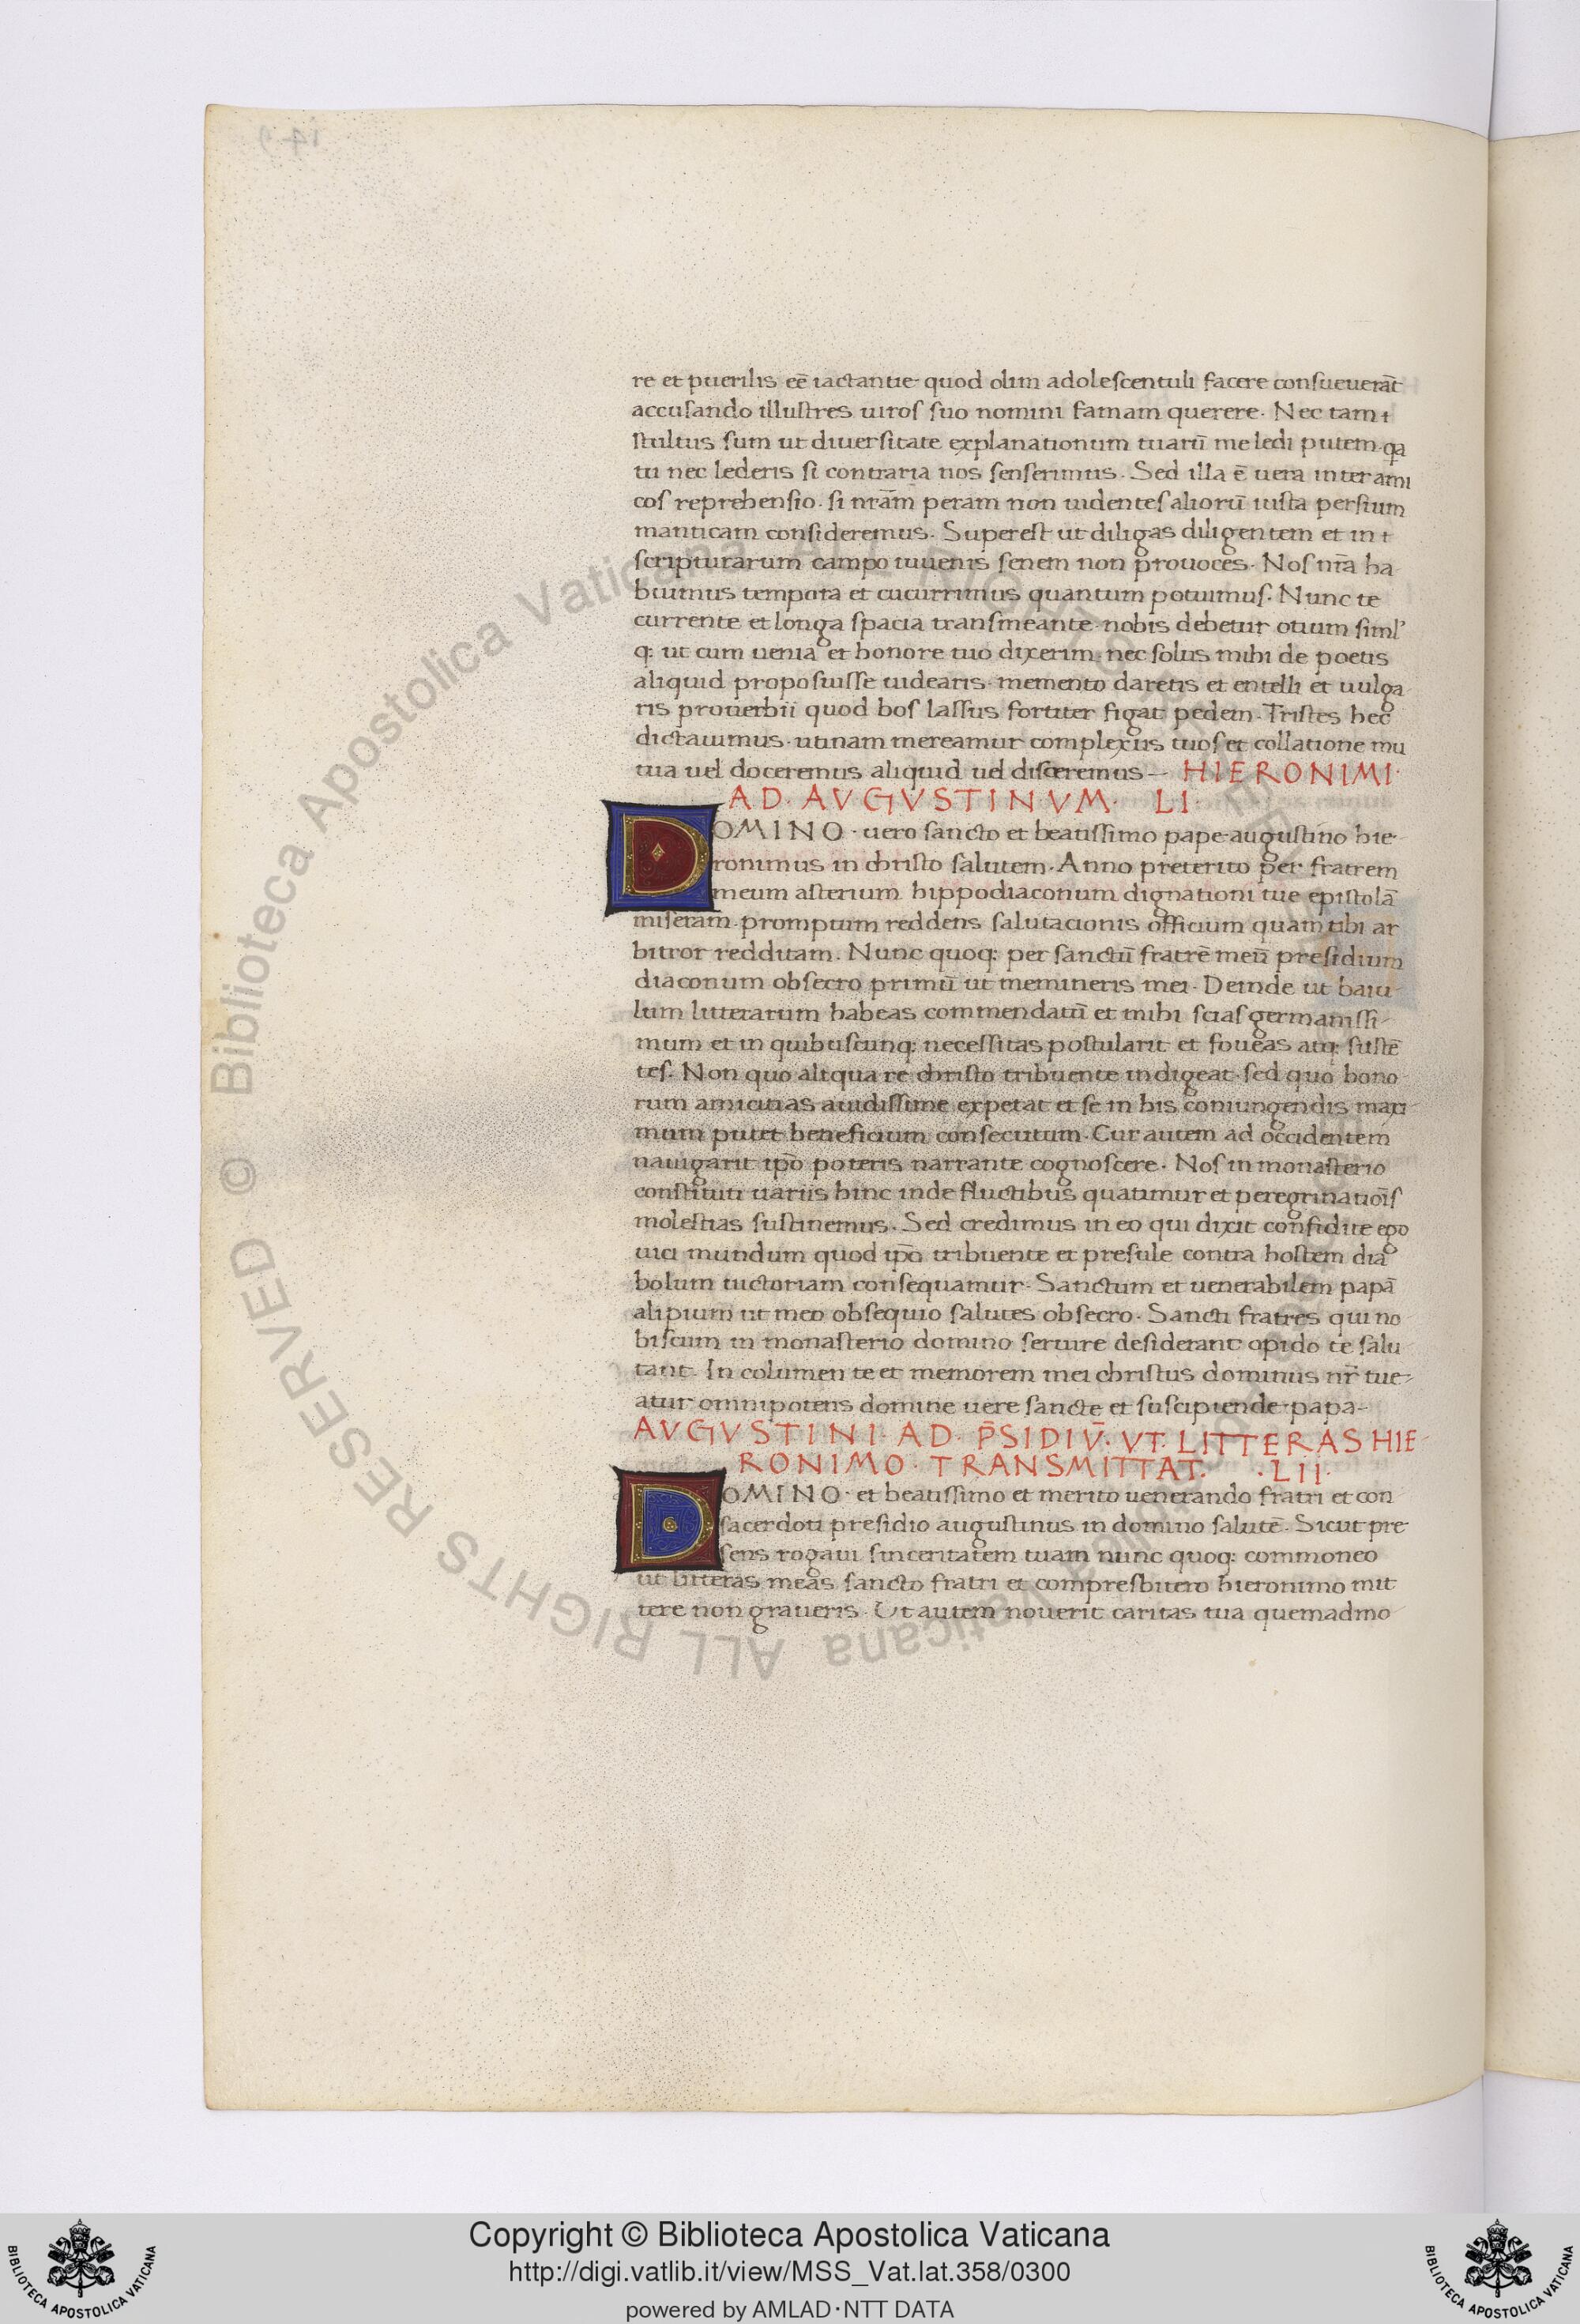 re et puerilis eē iactantie· quod olim adolescentuli facere consueuerāt
accusando illustres uiros suo nomini famam querere· Nec tam
stultus sum ut diuersitate explanationum tuarū me ledi putem· qa
tu nec lederis si contraria nos senserimus· Sed illa ē uera inter ami
cos reprehensio· si nrām peram non uidentes aliorū iusta persium
manticam consideremus· Superest ut diligas diligentem et in
scripturarum campo iuuenis senem non prouoces· Nos nrā ha
buimus tempora et cucurrimus quantum potuimus· Nunc te
currente et longa spacia transmeante· nobis debetur otium siml'
q: ut cum uenia et honore tuo dixerim· nec solus mihi de poetis
aliquid proposuisse uidearis· memento daretis et entelli et uulga
ris prouerbii quod bos lassus fortiter figat pedem· Tristes hec
dictauimus· utinam mereamur complexus tuos et collatione mu
tua uel doceremus aliquid uel disceremus— HIERONIMI·
AD· AVGVSTINVM· LI·
DOMINO· uero sancto et beatissimo pape augustino hie
ronimus in christo salutem· Anno preterito per fratrem
meum asterium hippodiaconum dignationi tue epistolā
miseram· promptum reddens salutacionis officium quam tibi ar
bitror redditam· Nunc quoq: per sanctū fratrē meū presidium
diaconum obsecro primū ut memineris mei· Deinde ut baiu
lum litterarum habeas commendatū et mihi scias germanissi
mum et in quibuscunq: necessitas postularit et foueas atq: sustē
tes· Non quo aliqua re christo tribuente indigeat· sed quo bono
rum amicitias auidissime expetat et se in his coniungendis maxi
mum putet beneficium consecutum· Cur autem ad occidentem
nauigarit ipō poteris narrante cognoscere· Nos in monasterio
constituti uariis hinc inde fluctibus quatimur et peregrinatiōis
molestias sustinemus· Sed credimus in eo qui dixit confidite ego
uici mundum quod ipō tribuente et presule contra hostem dia
bolum uictoriam consequamur· Sanctum et uenerabilem papā
alipium ut meo obsequio salutes obsecro· Sancti fratres qui no
biscum in monasterio domino seruire desiderant opido te salu
tant· In columen te et memorem mei christus dominus nr̄ tue
atur omnipotens domine uere sancte et suscipiende papa-
AVGVSTINI· AD· P̄SIDIV̄· VT· LITTERAS HIE
RONIMO· TRANSMITTAT· ·LII·
DOMINO· et beatissimo et merito uenerando fratri et con
sacerdoti presidio augustinus in domino salutē· Sicut pre
sens rogaui sinceritatem tuam nunc quoq: commoneo
ut litteras meas sancto fratri et compresbitero hieronimo mit
tere non graueris· Ut autem nouerit caritas tua quemadmo
© Biblioteca Apostolica Vaticana ALL RIGHTS RESERVED
Copyright © Biblioteca Apostolica Vaticana
http://digi.vatlib.it/view/MSS_Vat.lat.358/0300
powered by AMLAD·NTT DATA
BIBLIOTECA APOSTOLICA VATICANA
BIBLIOTECA APOSTOLICA VATICANA